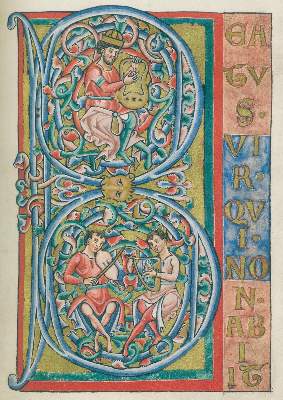 B
EA
TVS·
VIR·
QVI·
NON·
ABIIT